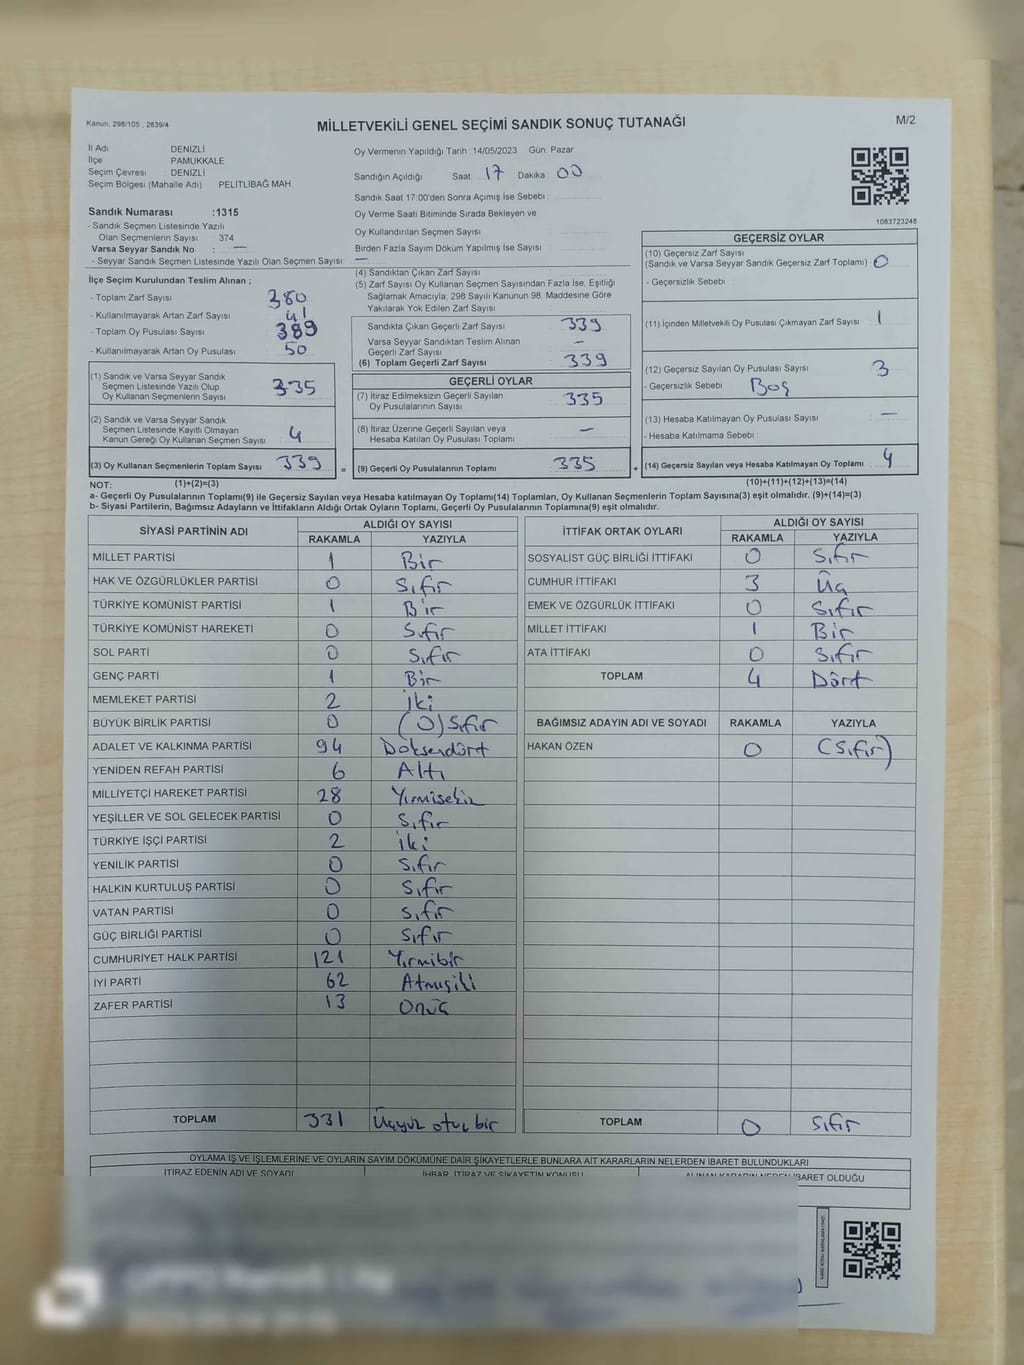 Kanun, 298/105 , 2839/4
MİLLETVEKİLİ GENEL SEÇİMİ SANDIK SONUÇ TUTANAĞI
M/2
İl Adı DENİZLİ
İlçe PAMUKKALE
Seçim Çevresi : DENİZLİ
Seçim Bölgesi (Mahalle Adı) PELİTLİBAĞ MAH.
Sandık Numarası :1315
- Sandık Seçmen Listesinde Yazılı
Olan Seçmenlerin Sayısı 374
Varsa Seyyar Sandık No : —
- Seyyar Sandık Seçmen Listesinde Yazılı Olan Seçmen Sayısı : —
Oy Vermenin Yapıldığı Tarih :14/05/2023 Gün: Pazar
Sandığın Açıldığı Saat: 17 Dakika : 00
Sandık Saat 17:00'den Sonra Açımış İse Sebebi :
Oy Verme Saati Bitiminde Sırada Bekleyen ve
Oy Kullandırılan Seçmen Sayısı
Birden Fazla Sayım Döküm Yapılmış İse Sayısı
1083723248
İlçe Seçim Kurulundan Teslim Alınan ;
- Toplam Zarf Sayısı 380
- Kullanılmayarak Artan Zarf Sayısı : 41
- Toplam Oy Pusulası Sayısı 389
- Kullanılmayarak Artan Oy Pusulası : 50
(1) Sandık ve Varsa Seyyar Sandık
Seçmen Listesinde Yazılı Olup
Oy Kullanan Seçmenlerin Sayısı : 335
(2) Sandık ve Varsa Seyyar Sandık
Seçmen Listesinde Kayıtlı Olmayan
Kanun Gereği Oy Kullanan Seçmen Sayısı : 4
(3) Oy Kullanan Seçmenlerin Toplam Sayısı : 339
(4) Sandıktan Çıkan Zarf Sayısı
(5) Zarf Sayısı Oy Kullanan Seçmen Sayısından Fazla İse, Eşitliği
Sağlamak Amacıyla, 298 Sayılı Kanunun 98. Maddesine Göre
Yakılarak Yok Edilen Zarf Sayısı
Sandıkta Çıkan Geçerli Zarf Sayısı 339
Varsa Seyyar Sandıktan Teslim Alınan
Geçerli Zarf Sayısı —
(6) Toplam Geçerli Zarf Sayısı : 339
GEÇERLİ OYLAR
(7) İtiraz Edilmeksizin Geçerli Sayılan
Oy Pusulalarının Sayısı : 335
(8) İtiraz Üzerine Geçerli Sayılan veya
Hesaba Katılan Oy Pusulası Toplamı : —
= (9) Geçerli Oy Pusulalarının Toplamı 335
GEÇERSİZ OYLAR
(10) Geçersiz Zarf Sayısı
(Sandık ve Varsa Seyyar Sandık Geçersiz Zarf Toplamı) : 0
- Geçersizlik Sebebi :
(11) İçinden Milletvekili Oy Pusulası Çıkmayan Zarf Sayısı : 1
(12) Geçersiz Sayılan Oy Pusulası Sayısı : 3
- Geçersizlik Sebebi : Boş
(13) Hesaba Katılmayan Oy Pusulası Sayısı : —
- Hesaba Katılmama Sebebi :
+ (14) Geçersiz Sayılan veya Hesaba Katılmayan Oy Toplamı : 4
NOT: (1)+(2)=(3)
(10)+(11)+(12)+(13)=(14)
a- Geçerli Oy Pusulalarının Toplamı(9) ile Geçersiz Sayılan veya Hesaba katılmayan Oy Toplamı(14) Toplamları, Oy Kullanan Seçmenlerin Toplam Sayısına(3) eşit olmalıdır. (9)+(14)=(3)
b- Siyasi Partilerin, Bağımsız Adayların ve İttifakların Aldığı Ortak Oyların Toplamı, Geçerli Oy Pusulalarının Toplamına(9) eşit olmalıdır.
SİYASİ PARTİNİN ADI ALDIĞI OY SAYISI
RAKAMLA YAZIYLA
MİLLET PARTİSİ 1 Bir
HAK VE ÖZGÜRLÜKLER PARTİSİ 0 Sıfır
TÜRKİYE KOMÜNİST PARTİSİ 1 Bir
TÜRKİYE KOMÜNİST HAREKETİ 0 Sıfır
SOL PARTİ 0 Sıfır
GENÇ PARTİ 1 Bir
MEMLEKET PARTİSİ 2 İki
BÜYÜK BİRLİK PARTİSİ 0 (0) Sıfır
ADALET VE KALKINMA PARTİSİ 94 Doksandört
YENİDEN REFAH PARTİSİ 6 Altı
MİLLİYETÇİ HAREKET PARTİSİ 28 Yırmisekiz
YEŞİLLER VE SOL GELECEK PARTİSİ 0 Sıfır
TÜRKİYE İŞÇİ PARTİSİ 2 iki
YENİLİK PARTİSİ 0 Sıfır
HALKIN KURTULUŞ PARTİSİ 0 Sıfır
VATAN PARTİSİ 0 Sıfır
GÜÇ BİRLİĞİ PARTİSİ 0 Sıfır
CUMHURİYET HALK PARTİSİ 121 Yırmibir
İYİ PARTİ 62 Atmışiki
ZAFER PARTİSİ 13 Onüç
TOPLAM 331 Üçyüz otuz bir
İTTİFAK ORTAK OYLARI ALDIĞI OY SAYISI
RAKAMLA YAZIYLA
SOSYALİST GÜÇ BİRLİĞİ İTTİFAKI 0 Sıfır
CUMHUR İTTİFAKI 3 Üç
EMEK VE ÖZGÜRLÜK İTTİFAKI 0 Sıfır
MİLLET İTTİFAKI 1 Bir
ATA İTTİFAKI 0 Sıfır
TOPLAM 4 Dört
BAĞIMSIZ ADAYIN ADI VE SOYADI RAKAMLA YAZIYLA
HAKAN ÖZEN 0 (Sıfır)
TOPLAM 0 Sıfır
OYLAMA İŞ VE İŞLEMLERİNE VE OYLARIN SAYIM DÖKÜMÜNE DAİR ŞİKAYETLERLE BUNLARA AİT KARARLARIN NELERDEN İBARET BULUNDUKLARI
İTİRAZ EDENİN ADI VE SOYADI İHBAR, İTİRAZ VE ŞİKAYETİN KONUSU ALINAN KARARIN NEDEN İBARET OLDUĞU